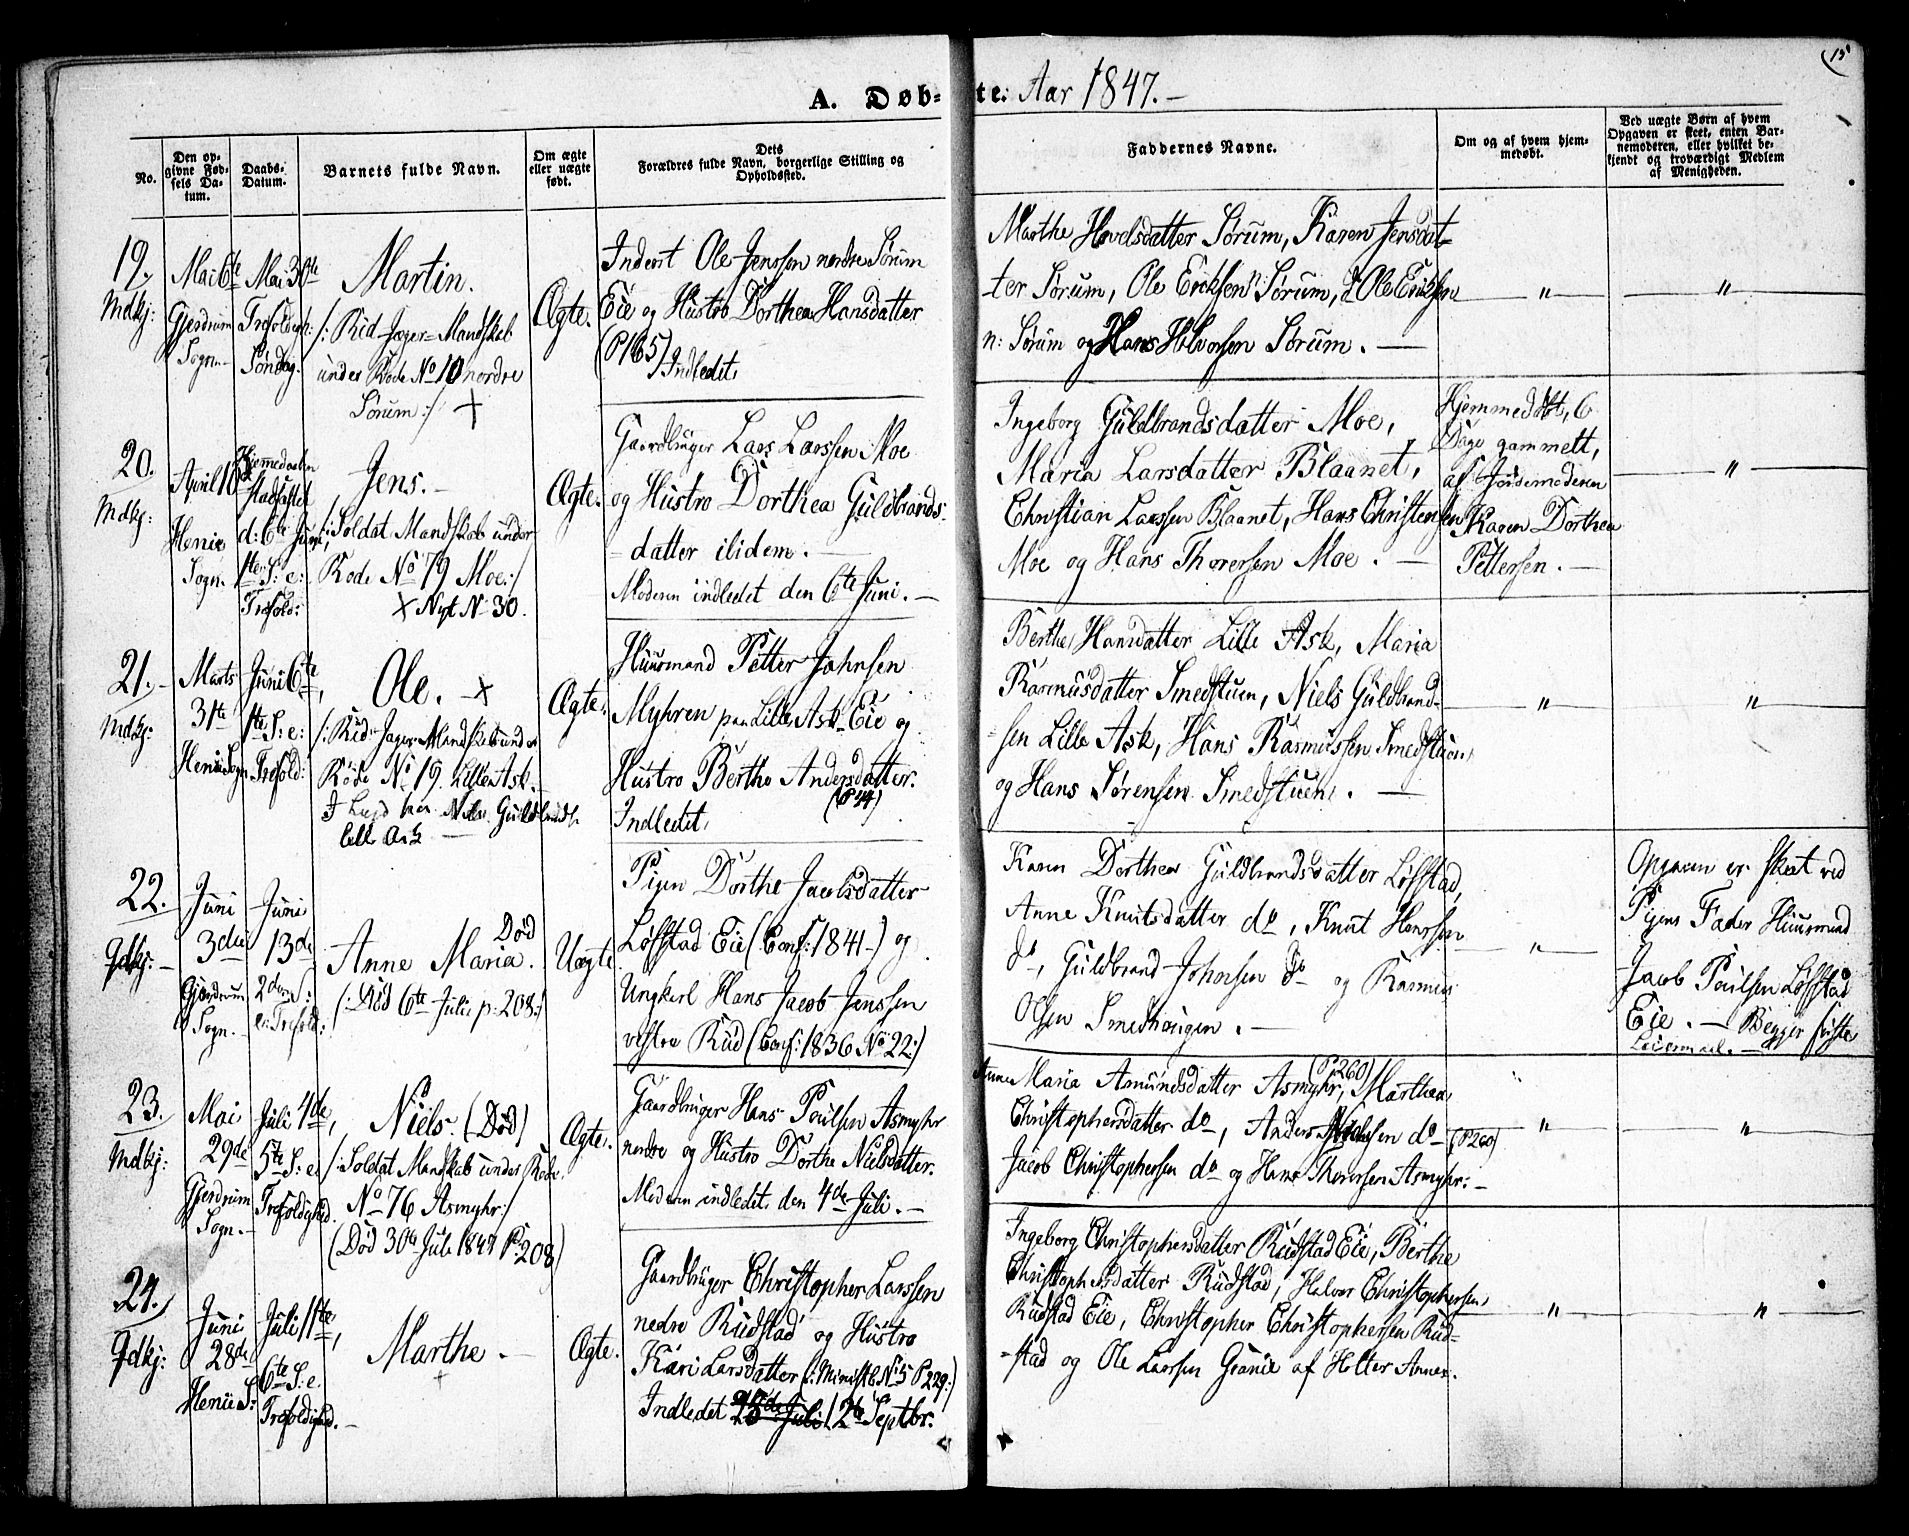 15
A. Døb-
te: Aar 1847.-
No.
Den op-
givne Fød-
sels Da-
tum.
Daabs-
Datum.
Barnets fulde Navn.
Om ægte
eller uægte
født.
Dets
Forældres fulde Navn, borgerlige Stilling og
Opholdssted.
Faddernes Navne.
Om og af hvem hjem-
medøbt.
Ved uægte Børn af hvem
Opgaven er skeet, enten Bar-
nemoderen, eller hvilket be-
kjendt og troværdigt Medlem
af Menigheden.
19.
Mdkj:
Mai 6te
Gjerdrum
Sogn.-
Mai 30te
Trefoldigh:
Søndag.
Martin.
/: Rid-Jæger-Mandskab
under Rode No 10 nordre
Sørum :/ +
Ægte.
Inderst Ole Jenssen nordre Sørum
Eie og Hustro Dorthea Hansdatter
(P 165) Indledet.
Marthe Hovelsdatter Sørum, Karen Jensdat-
ter Sørum, Ole Ericksen n: Sørum, Ole Ericksen
n: Sørum og Hans Halvorsen Sørum. -
"
"
20.
Mdkj:
April 10de
Henie
Sogn.
Hjemmedaaben
stadfæstet
d: 6te Juni,
1ste S: e:
Trefold:
Jens. -
/: Soldat Mandskab under
Rode No 79 Moe :/
+ Nyt No 30.
Ægte.
Gaardbruger Lars Larssen Moe
og Hustro Dorthea Guldbrands-
datter ibidem. -
Moderen indledet den 6te Juni. -
Ingeborg Guldbrandsdatter Moe,
Maria Larsdatter Blaanet,
Christian Larssen Blaanet, Hans Christensen
Moe og Hans Thorersen Moe. -
Hjemmedøbt, 6
Dage gammelt,
af Jordemoderen
Karen Dorthea
Pettersen. -
"
21.-
Mdkj:
Marts
31te
Henie Sogn
Juni 6te,
1ste S: e:
Trefold:
Ole. - +
/: Rid-Jæger-Mandskab under
Rode No 19. Lille Ask.
Niels Guldbrands
lille Ask
Ægte.
Huusmand Petter Johnsen
Myhren paa Lille Ask Eie og
Hustro Berthe Andersdatter.
(P 44)
Indledet.
Berthe Hansdatter Lille Ask, Maria
Rasmusdatter Smedstuen, Niels Guldbrand-
sen Lille Ask, Hans Rasmussen Smedstuen,
og Hans Sørensen Smedstuen. -
"
"
22.
Qdkj: -
Juni
3die
Gjerdrum
Sogn.-
Juni
13de
2den S:
e: Trefold:
Død
Anne Maria.
(: Død 6te Julii p: 208:)
Uægte
Pigen Dorthe Jacobsdatter
Løfstad Eie (Conf: 1841-) og
Ungkarl Hans Jacob Jenssen
vestre Rud (Conf: 1836 No 22:)
Karen Dorthea Guldbrandsdatter Løfstad,
Anne Knutsdatter do, Knut Hanssen
do, Guldbrand Johnsen do og Rasmus
Olsen Smedhougen. -
"
Opgaven er skeet ved
Pigens Fader Huusmand
Jacob Poulsen Løfstad
Eie. - Begges første
Leiermaal. -
23.
Mdkj:
Mai
29de
Gjerdrum
Sogn.-
Juli 4de,
5te S: e:
Trefoldighed.
Niels. (Død)
/: Soldat Mandskab under Rode
No 76 Asmyhr :/
(Død 30te Juli 1847 P: 208)
Ægte.
Gaardbruger Hans Poulsen Asmyhr
nordre og Hustro Dorthe Nielsdatter.
Moderen indledet den 4de Juli. -
(P 260)
Anne Maria Amundsdatter Asmyhr, Marthea
Christophersdatter do, Anders Nielsen do (P 260)
Jacob Christophersen do og Hans Thorersen Asmyhr: -
"
"
24.
Qdkj:
Juni
28de
Henie S:
Juli 11te,
6te S: e.
Trefoldighed. -
Marthe. -
+
Ægte.
Gaardbruger Christopher Larssen
nedre Rudstad og Hustro
Kari Larsdatter (: Ministb. No 5 P 229:)
Indledet 25de Juli 12te Septbr.
Ingeborg Christophersdatter Rudstad Eie, Berthe
Christophersdatter Rudstad, Halvor Christophersen
Rudstad Eie, Christopher Christophersen Rud-
stad og Ole Larssen Granie af Holter Annex.
"
"